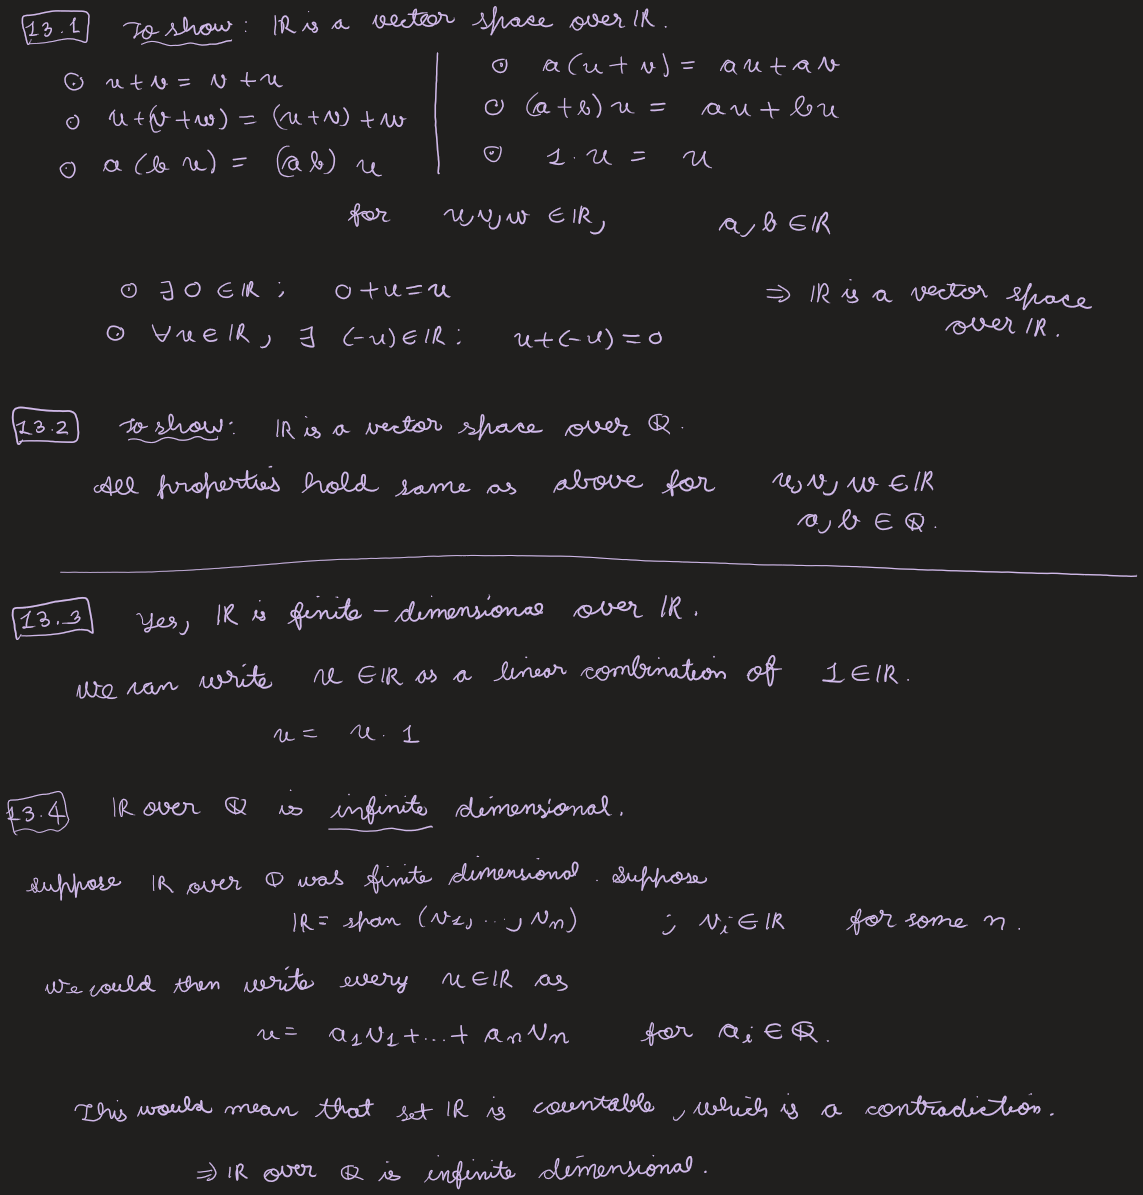 13.1 To show: ℝ is a vector space over ℝ.
⊙ u+v = v+u
⊙ u+(v+w) = (u+v)+w
⊙ a(bu) = (ab)u
⊙ a(u+v) = au+av
⊙ (a+b)u = au+bu
⊙ 1·u = u
for u,v,w ∈ ℝ, a,b ∈ ℝ
⊙ ∃ 0 ∈ ℝ ; 0+u=u
⊙ ∀u∈ℝ, ∃ (-u)∈ℝ: u+(-u)=0
⇒ ℝ is a vector space
over ℝ.
13.2 To show: ℝ is a vector space over ℚ.
All properties hold same as above for u,v,w ∈ ℝ
a,b ∈ ℚ.
13.3 Yes, ℝ is finite-dimensional over ℝ.
We can write u ∈ ℝ as a linear combination of 1 ∈ ℝ.
u = u·1
13.4 ℝ over ℚ is infinite dimensional.
Suppose ℝ over ℚ was finite dimensional. Suppose
ℝ = span (v₁, ..., vₙ) ; vᵢ ∈ ℝ for some n.
We could then write every u ∈ ℝ as
u = a₁v₁+...+aₙvₙ for aᵢ ∈ ℚ.
This would mean that set ℝ is countable, which is a contradiction.
⇒ ℝ over ℚ is infinite dimensional.